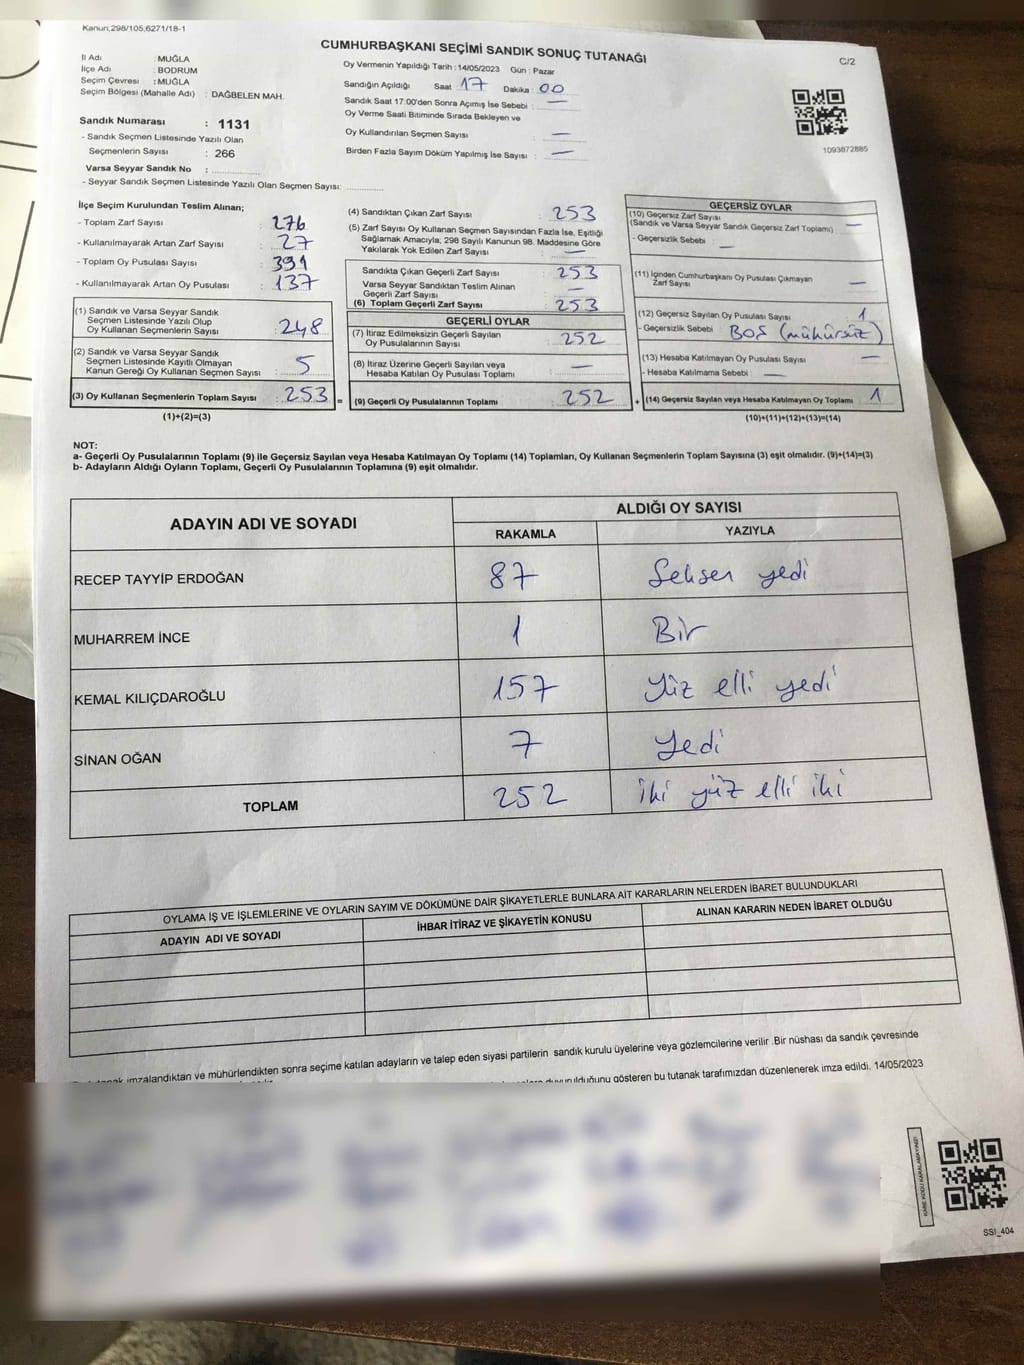 Kanun;298/105;6271/18-1
CUMHURBAŞKANI SEÇİMİ SANDIK SONUÇ TUTANAĞI
C/2
İl Adı : MUĞLA
İlçe Adı : BODRUM
Seçim Çevresi : MUĞLA
Seçim Bölgesi (Mahalle Adı) : DAĞBELEN MAH.
Sandık Numarası : 1131
- Sandık Seçmen Listesinde Yazılı Olan
Seçmenlerin Sayısı : 266
Varsa Seyyar Sandık No :
- Seyyar Sandık Seçmen Listesinde Yazılı Olan Seçmen Sayısı:
Oy Vermenin Yapıldığı Tarih : 14/05/2023 Gün : Pazar
Sandığın Açıldığı Saat 17 Dakika 00
Sandık Saat 17.00'den Sonra Açımış İse Sebebi : —
Oy Verme Saati Bitiminde Sırada Bekleyen ve
Oy Kullandırılan Seçmen Sayısı : —
Birden Fazla Sayım Döküm Yapılmış İse Sayısı : —
1093872885
İlçe Seçim Kurulundan Teslim Alınan;
- Toplam Zarf Sayısı : 276
- Kullanılmayarak Artan Zarf Sayısı : 27
- Toplam Oy Pusulası Sayısı : 391
- Kullanılmayarak Artan Oy Pusulası : 137
(1) Sandık ve Varsa Seyyar Sandık
Seçmen Listesinde Yazılı Olup
Oy Kullanan Seçmenlerin Sayısı : 248
(2) Sandık ve Varsa Seyyar Sandık
Seçmen Listesinde Kayıtlı Olmayan
Kanun Gereği Oy Kullanan Seçmen Sayısı : 5
(3) Oy Kullanan Seçmenlerin Toplam Sayısı : 253 =
(1)+(2)=(3)
(4) Sandıktan Çıkan Zarf Sayısı : 253
(5) Zarf Sayısı Oy Kullanan Seçmen Sayısından Fazla İse, Eşitliği
Sağlamak Amacıyla, 298 Sayılı Kanunun 98. Maddesine Göre
Yakılarak Yok Edilen Zarf Sayısı : —
Sandıkta Çıkan Geçerli Zarf Sayısı : 253
Varsa Seyyar Sandıktan Teslim Alınan
Geçerli Zarf Sayısı : —
(6) Toplam Geçerli Zarf Sayısı : 253
GEÇERLİ OYLAR
(7) İtiraz Edilmeksizin Geçerli Sayılan
Oy Pusulalarının Sayısı : 252
(8) İtiraz Üzerine Geçerli Sayılan veya
Hesaba Katılan Oy Pusulası Toplamı : —
(9) Geçerli Oy Pusulalarının Toplamı : 252 +
GEÇERSİZ OYLAR
(10) Geçersiz Zarf Sayısı
(Sandık ve Varsa Seyyar Sandık Geçersiz Zarf Toplamı) : —
- Geçersizlik Sebebi : —
(11) İçinden Cumhurbaşkanı Oy Pusulası Çıkmayan
Zarf Sayısı : —
(12) Geçersiz Sayılan Oy Pusulası Sayısı : 1
- Geçersizlik Sebebi : BOŞ (mühürsüz)
(13) Hesaba Katılmayan Oy Pusulası Sayısı : —
- Hesaba Katılmama Sebebi : —
(14) Geçersiz Sayılan veya Hesaba Katılmayan Oy Toplamı : 1
(10)+(11)+(12)+(13)=(14)
NOT:
a- Geçerli Oy Pusulalarının Toplamı (9) ile Geçersiz Sayılan veya Hesaba Katılmayan Oy Toplamı (14) Toplamları, Oy Kullanan Seçmenlerin Toplam Sayısına (3) eşit olmalıdır. (9)+(14)=(3)
b- Adayların Aldığı Oyların Toplamı, Geçerli Oy Pusulalarının Toplamına (9) eşit olmalıdır.
ADAYIN ADI VE SOYADI
ALDIĞI OY SAYISI
RAKAMLA YAZIYLA
RECEP TAYYİP ERDOĞAN 87 Seksen yedi
MUHARREM İNCE 1 Bir
KEMAL KILIÇDAROĞLU 157 Yüz elli yedi
SİNAN OĞAN 7 Yedi
TOPLAM 252 iki yüz elli iki
OYLAMA İŞ VE İŞLEMLERİNE VE OYLARIN SAYIM VE DÖKÜMÜNE DAİR ŞİKAYETLERLE BUNLARA AİT KARARLARIN NELERDEN İBARET BULUNDUKLARI
ADAYIN ADI VE SOYADI İHBAR İTİRAZ VE ŞİKAYETİN KONUSU ALINAN KARARIN NEDEN İBARET OLDUĞU
imzalandıktan ve mühürlendikten sonra seçime katılan adayların ve talep eden siyasi partilerin sandık kurulu üyelerine veya gözlemcilerine verilir .Bir nüshası da sandık çevresinde
duyurulduğunu gösteren bu tutanak tarafımızdan düzenlenerek imza edildi. 14/05/2023
KARE KODU KARALAMAYINIZ!
SSI_404